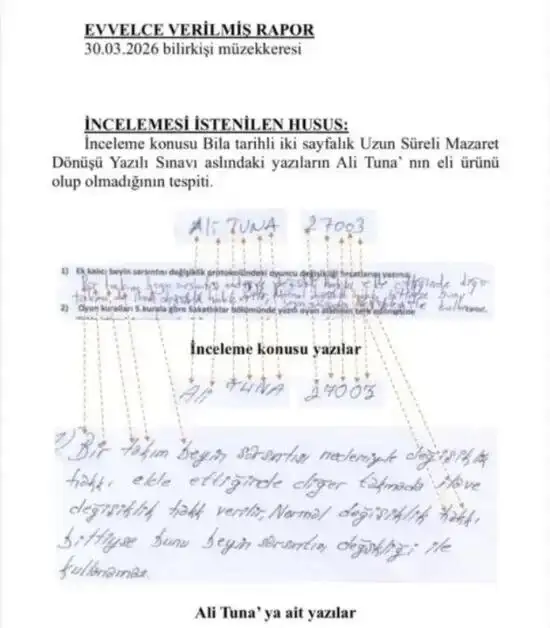 EVVELCE VERİLMİŞ RAPOR
30.03.2026 bilirkişi müzekkeresi
İNCELEMESİ İSTENİLEN HUSUS:
İnceleme konusu Bila tarihli iki sayfalık Uzun Süreli Mazaret
Dönüşü Yazılı Sınavı aslındaki yazıların Ali Tuna' nın eli ürünü
olup olmadığının tespiti.
Ali TUNA 27003
1) Ek kalıcı beyin sarsıntısı değişiklik protokolündeki oyuncu değişikliği fırsatlarını yazınız.
2) Oyun kuralları 5.kurala göre Sakatlıklar bölümünde
İnceleme konusu yazılar
Ali TUNA 27003
1) Bir takım beyin sarsıntısı nedeniyle değişiklik
hakkı elde ettiğinde diğer takımada ilave
değişiklik hakkı verilir, Normal değişiklik hakkı
bittiyse bunu beyin sarsıntısı değişikliği ile
kullanamaz.
Ali Tuna' ya ait yazılar